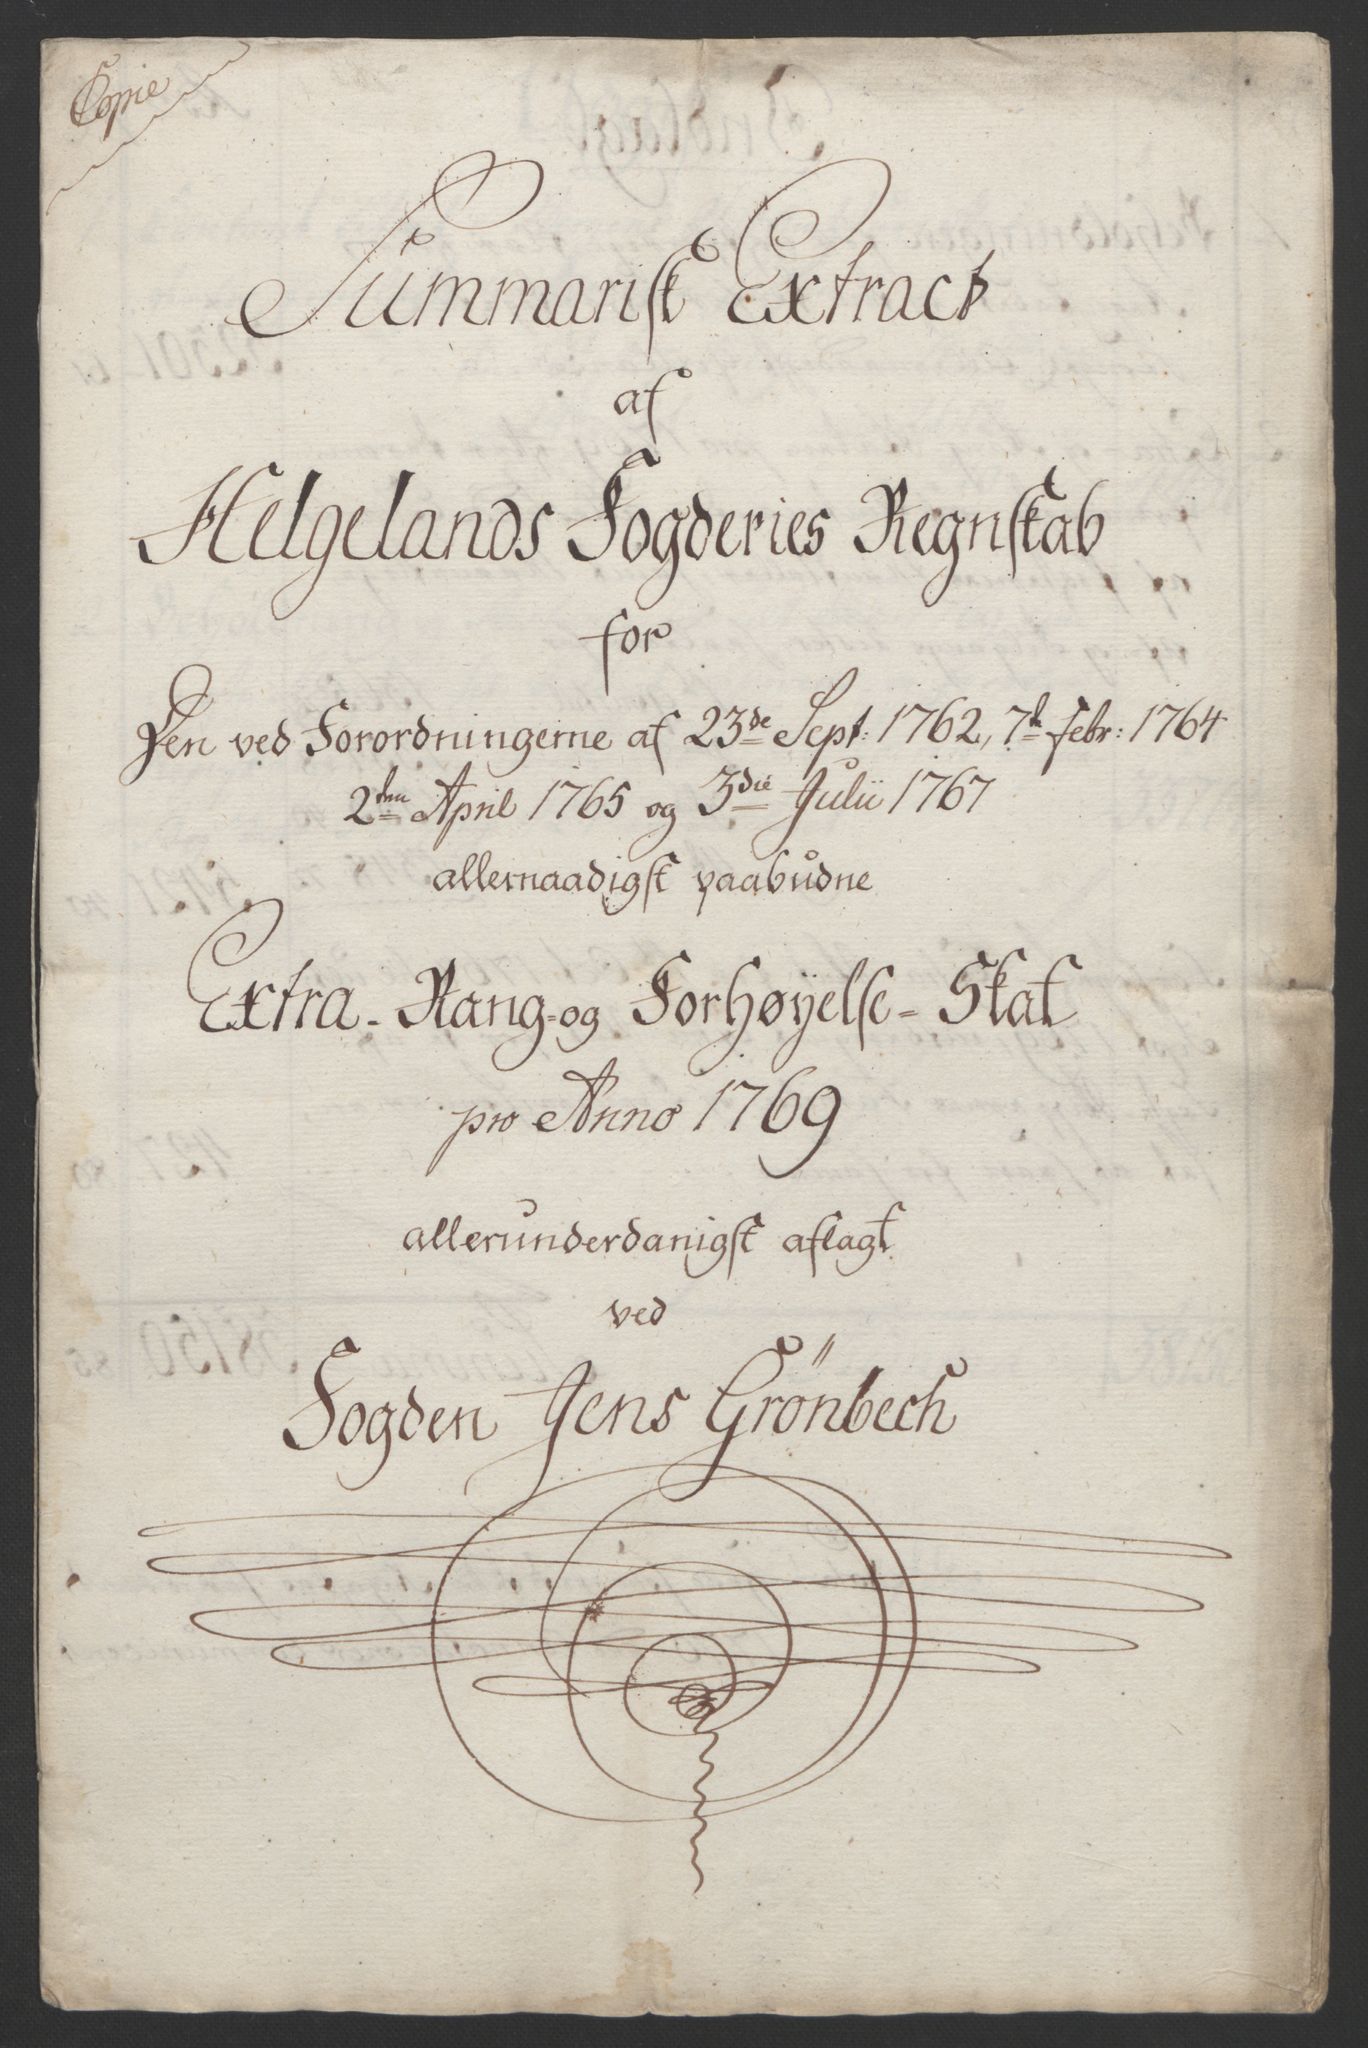 Copie
Summarisk Extract
af
Helgelands Fogderies Regnskab
for
Den ved Forordningerne af 23de Sept: 1762, 7de Febr: 1764
2den April 1765 og 3die Julii 1767
allernaadigst paabudne
Extra- Rang- og Forhøyelse- Skat
pro Anno 1769
allerunderdanigst aflagt
ved
Fogden Jens Grönbech